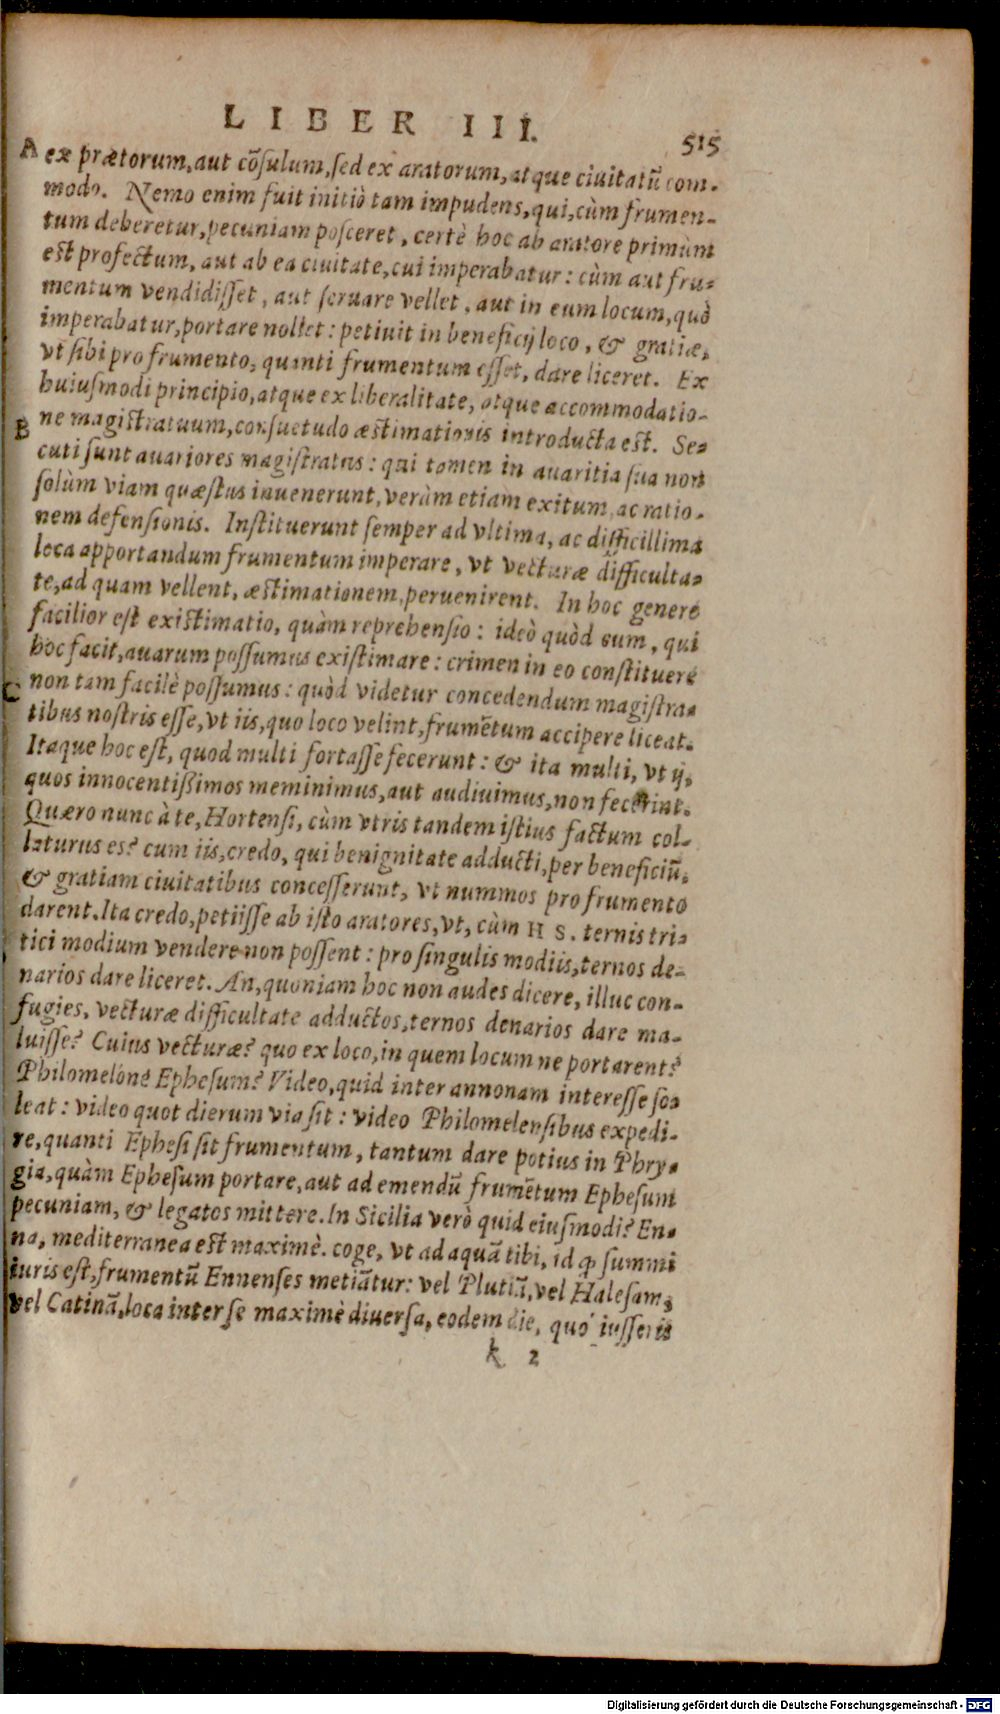 LIBER III. 515
A ex prætorum, aut cõsulum, sed ex aratorum, atque ciuitatũ com-
modo. Nemo enim fuit initiò tam impudens, qui, cùm frumen-
tum deberetur, pecuniam posceret, certè hoc ab aratore primùm
est profectum, aut ab ea ciuitate, cui imperabatur: cùm aut fru-
mentum vendidisset, aut seruare vellet, aut in eum locum, quò
imperabatur, portare nollet: petiuit in beneficij loco, & gratiæ,
vt sibi pro frumento, quanti frumentum esset, dare liceret. Ex
huiusmodi principio, atque ex liberalitate, atque accommodatio-
B ne magistratuum, consuetudo æstimationis introducta est. Se-
cuti sunt auariores magistratus: qui tamen in auaritia sua non
solùm viam quæstus inuenerunt, verùm etiam exitum, ac ratio-
nem defensionis. Instituerunt semper ad vltima, ac difficillima
loca apportandum frumentum imperare, vt vecturæ difficulta-
te, ad quam vellent, æstimationem, peruenirent. In hoc genere
facilior est existimatio, quàm reprehensio: ideò quòd eum, qui
hoc facit, auarum possumus existimare: crimen in eo constituere
C non tam facilè possumus: quòd videtur concedendum magistra-
tibus nostris esse, vt iis, quo loco velint, frumẽtum accipere liceat.
Itaque hoc est, quod multi fortasse fecerunt: & ita multi, vt ij,
quos innocentißimos meminimus, aut audiuimus, non fecerint.
Quæro nunc à te, Hortensi, cùm vtris tandem istius factum col-
laturus es? cum iis, credo, qui benignitate adducti, per beneficiũ,
& gratiam ciuitatibus concesserunt, vt nummos pro frumento
darent. Ita credo, petiisse ab isto aratores, vt, cùm H S. ternis tri-
tici modium vendere non possent: pro singulis modiis, ternos de-
narios dare liceret. An, quoniam hoc non audes dicere, illuc con-
fugies, vecturæ difficultate adductos, ternos denarios dare ma-
luisse? Cuius vecturæ? quo ex loco, in quem locum ne portarent?
Philomelóne Ephesum? Video, quid inter annonam interesse so-
leat: video quot dierum via sit: video Philomelensibus expedi-
re, quanti Ephesi sit frumentum, tantum dare potius in Phry-
gia, quàm Ephesum portare, aut ad emendũ frumẽtum Ephesum
pecuniam, & legatos mittere. In Sicilia verò quid eiusmodi? En-
na, mediterranea est maximè. coge, vt ad aquã tibi, id ꝙ summi
iuris est, frumentũ Ennenses metiãtur: vel Plutiã, vel Halesam,
vel Catinã, loca inter se maximè diuersa, eodem die, quo iusseris
k 2
Digitalisierung gefördert durch die Deutsche Forschungsgemeinschaft - DFG